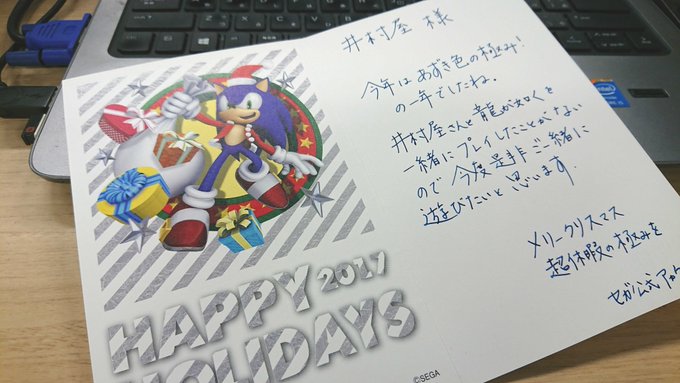 HAPPY 2017
HOLIDAYS
©SEGA
井村屋 様
今年はあずき色の極み!
の一年でしたね。
井村屋さんと龍が如くを
一緒にプレイしたことがない
ので今度是非ご一緒に
遊びたいと思います。
メリークリスマス
超休暇の極みを
セガ公式アカ